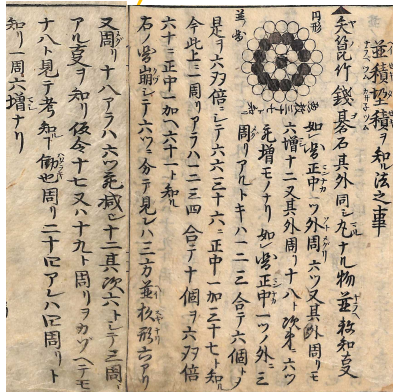 並積竪積ヲ知ル法之事
▲矢箟竹銭碁石其外同シ丸ナル物並数知ル事
円形
並ノ圖
如圖正中一ツ外周六ツ又其外周リモ
六増十二又其外周リ十八ト次第ニ六ツ
宛増モノナリ如圖正中一ツノ外ニ三
周リアルトキハ一二三合テ六個ト
是ヲ六双倍シテ六六三十六ニ正中一加三十七ト知ル
今此上ニ一周リアラハ一二三四合テ十個ヲ六双倍
六十ニ正中一加ヘ六十一ト知ル
石ノ圖崩シテ六ツニ分テ見レハ三方並形六アリ
又周リ十八アラハ六ツ宛減シ十二其次六トシテ三周
アル事ヲ知リ仮令十七又ハ十九ト周リヲカゾヘテモ
十八ト見テ考知ル働也周リ二十四アレハ四周リト
知リ一周六増ナリ